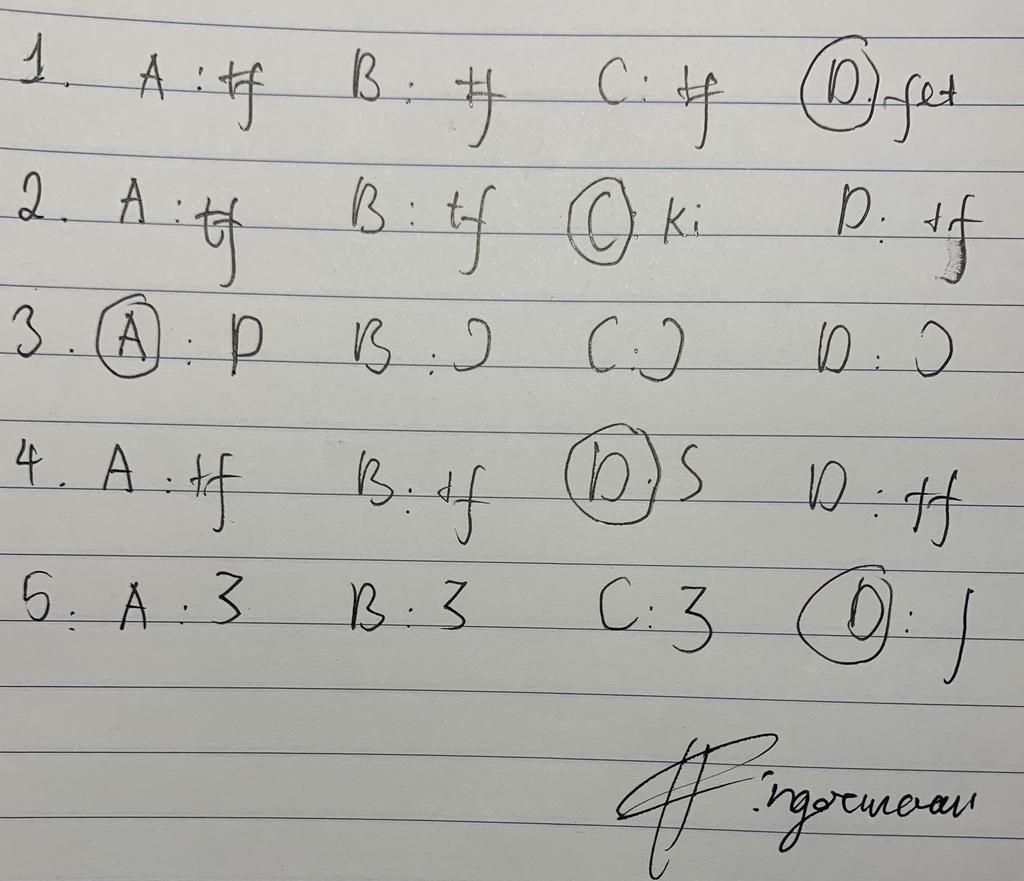 1. A : tf B : tf C : tf D. fet
2. A : tf B : tf C ki D : tf
3. A : D B : Ɔ C : Ɔ D : Ɔ
4. A : tf B : tf D. S D : tf
5 : A : 3 B : 3 C : 3 D : ʃ